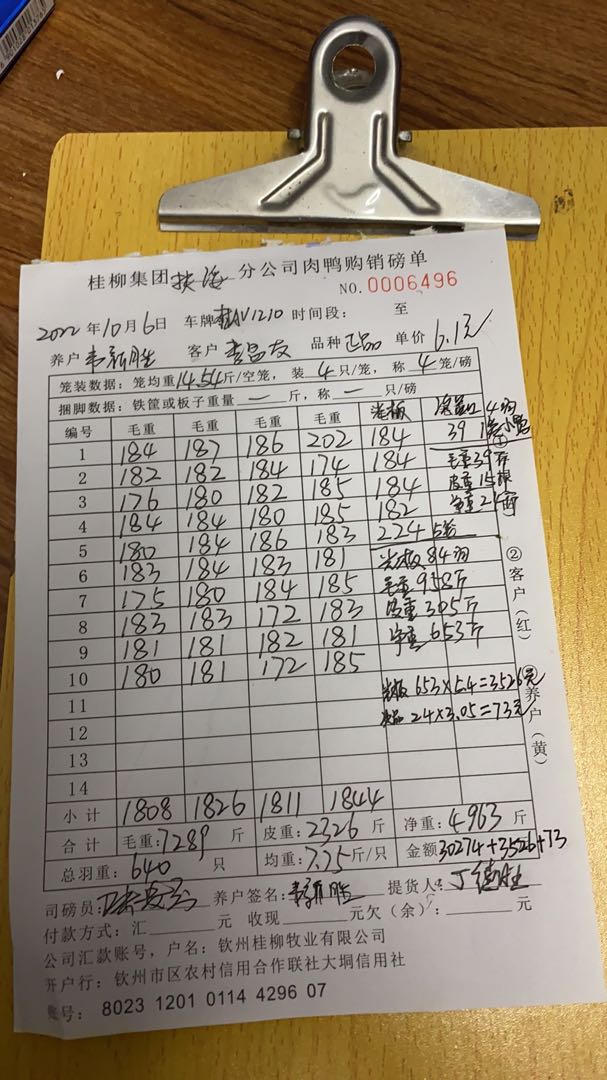 桂柳集团 扶海 分公司肉鸭购销磅单
NO.0006496
2022年10月6日 车牌 1210 时间段: 至
养户 韦新胜 客户 李昌友 品种 正品 单价 6.1元
笼装数据: 笼均重14.54斤/空笼, 装 4 只/笼, 称 4 笼/磅
捆脚数据: 铁筐或板子重量 — 斤, 称 — 只/磅
编号 毛重 毛重 毛重 毛重 光板 4羽
1 184 187 186 202 184 39
2 182 182 184 174 184 毛重39斤
3 176 180 182 185 184 皮重15斤
4 184 184 180 185 182 净重24斤
5 180 184 186 183 224
6 183 184 183 181 光板84羽
7 175 180 184 185 毛重958斤
8 183 183 172 183 皮重305斤
9 181 181 182 181 净重653斤
10 180 181 172 185
11 光板 653×5.4=3526元
12 次品 24×3.05=73元
13
14
小计 1808 1826 1811 1844
合计 毛重:7289 斤 皮重:2326 斤 净重:4963 斤
总羽重: 640 只 均重:7.75斤/只 金额30274+3526+73
司磅员: 养户签名: 韦新胜 提货人:
付款方式: 汇 元 收现 元欠(余): 元
公司汇款账号, 户名: 钦州桂柳牧业有限公司
开户行: 钦州市区农村信用合作联社大垌信用社
账号: 8023 1201 0114 4296 07
①
②客户(红)
③养户(黄)